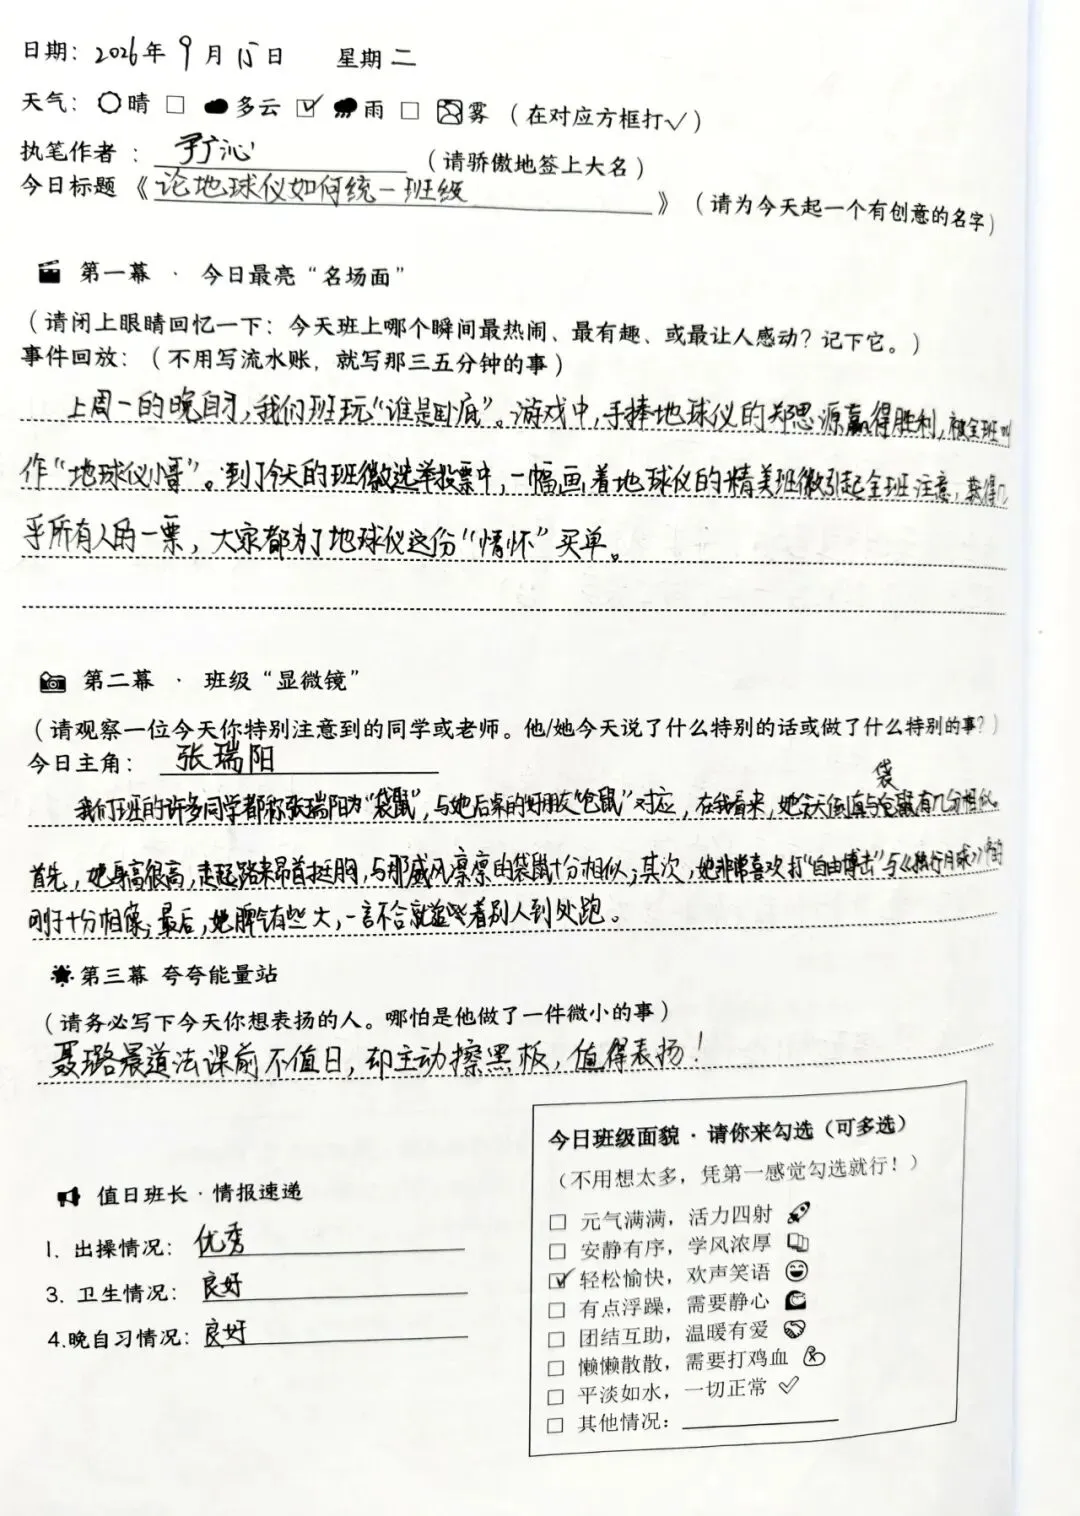 日期：2026年 9月 15日 星期 二
天气：晴 □ 多云 ☑ 雨 □ 雾 （在对应方框打✓）
执笔作者：沁 （请骄傲地签上大名）
今日标题《论地球仪如何统一班级》（请为今天起一个有创意的名字）
第一幕 · 今日最亮“名场面”
（请闭上眼睛回忆一下：今天班上哪个瞬间最热闹、最有趣、或最让人感动？记下它。）
事件回放：（不用写流水账，就写那三五分钟的事）
上周一的晚自习，我们班玩“谁是卧底”。游戏中，手捧地球仪的郑思源赢得胜利，被全班叫
作“地球仪小哥”。到了今天的班徽选举投票中，一幅画着地球仪的精美班徽引起全班注意，获得几
乎所有人的一票，大家都为了地球仪这份“情怀”买单。
第二幕 · 班级“显微镜”
（请观察一位今天你特别注意到的同学或老师。他/她今天说了什么特别的话或做了什么特别的事？）
今日主角：张瑞阳
我们班的许多同学都称张瑞阳为“袋鼠”，与她后桌的好朋友“仓鼠”对应，在我看来，她今天倒真与袋鼠有几分相似。
首先，她身高很高，走起路来昂首挺胸，与那威风凛凛的袋鼠十分相似；其次，她非常喜欢打“自由搏击”与《独行月球》里的
刚子十分相像；最后，她脾气有些大，一言不合就追着别人到处跑。
第三幕 夸夸能量站
（请务必写下今天你想表扬的人。哪怕是他做了一件微小的事）
聂璐晨道法课前不值日，却主动擦黑板，值得表扬！
值日班长 · 情报速递
1. 出操情况：优秀
3. 卫生情况：良好
4.晚自习情况：良好
今日班级面貌 · 请你来勾选（可多选）
（不用想太多，凭第一感觉勾选就行！）
□ 元气满满，活力四射
□ 安静有序，学风浓厚
☑ 轻松愉快，欢声笑语
□ 有点浮躁，需要静心
□ 团结互助，温暖有爱
□ 懒懒散散，需要打鸡血
□ 平淡如水，一切正常
□ 其他情况：